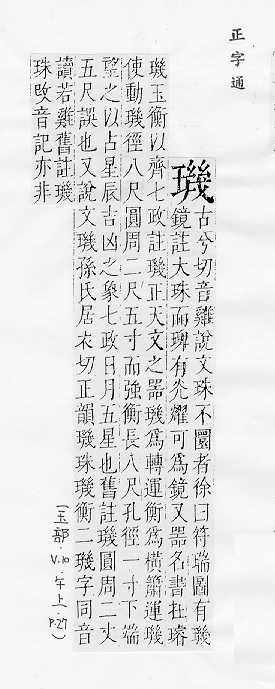 正字通
璣
古兮切音雞說文珠不圜者徐曰符瑞圖有璣
鏡註大珠而琕有光耀可爲鏡又器名書在璿
璣玉衡以齊七政註璣正天文之器璣爲轉運衡爲橫簫運璣
使動璣徑八尺圓周二尺五寸而強衡長八尺孔徑一寸下端
望之以占星辰吉凶之象七政日月五星也舊註璣圓周二丈
五尺誤也又說文璣孫氏居衣切正韻璣珠璣衡二璣字同音
讀若雞舊註璣
珠攺音記亦非
(玉部·V.10·午上·P.27)